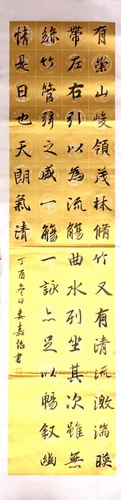 有崇山峻領茂林脩竹又有清流激湍暎
帶左右引以為流觴曲水列坐其次雖無
絲竹管弦之盛一觴一詠亦足以暢叙幽
情是日也天朗氣清
丁酉冬日嘉書